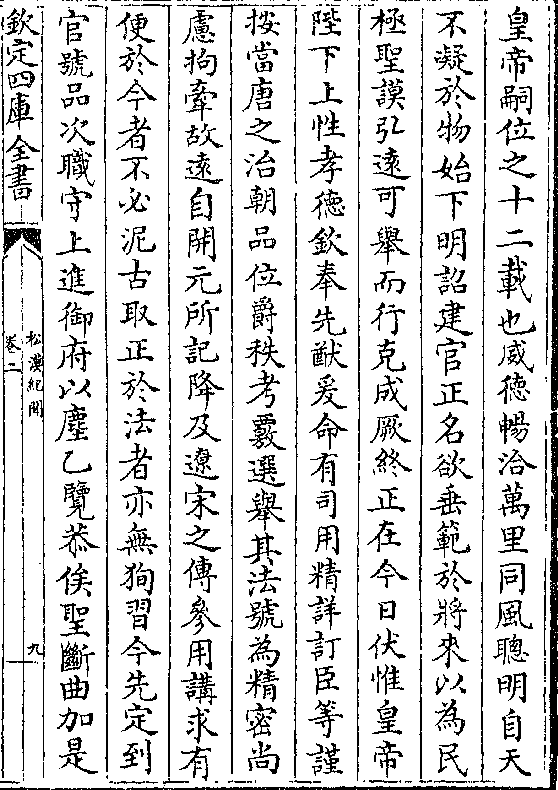 皇帝嗣位之十二載也威德暢洽萬里同風聰明自天
不凝於物始下明詔建官正名欲垂範於將來以為民
極聖謨弘遠可舉而行克成厥終正在今日伏惟皇帝
陛下上性孝德欽奉先猷爰命有司用精詳訂臣等謹
按當唐之治朝品位爵秩考覈選舉其法號為精密尚
慮拘牽故遠自開元所記降及遼宋之傳參用講求有
便於今者不必泥古取正於法者亦無狥習今先定到
官號品次職守上進御府以塵乙覽恭俟聖斷曲加是
欽定四庫全書
松漠紀聞
卷二
九